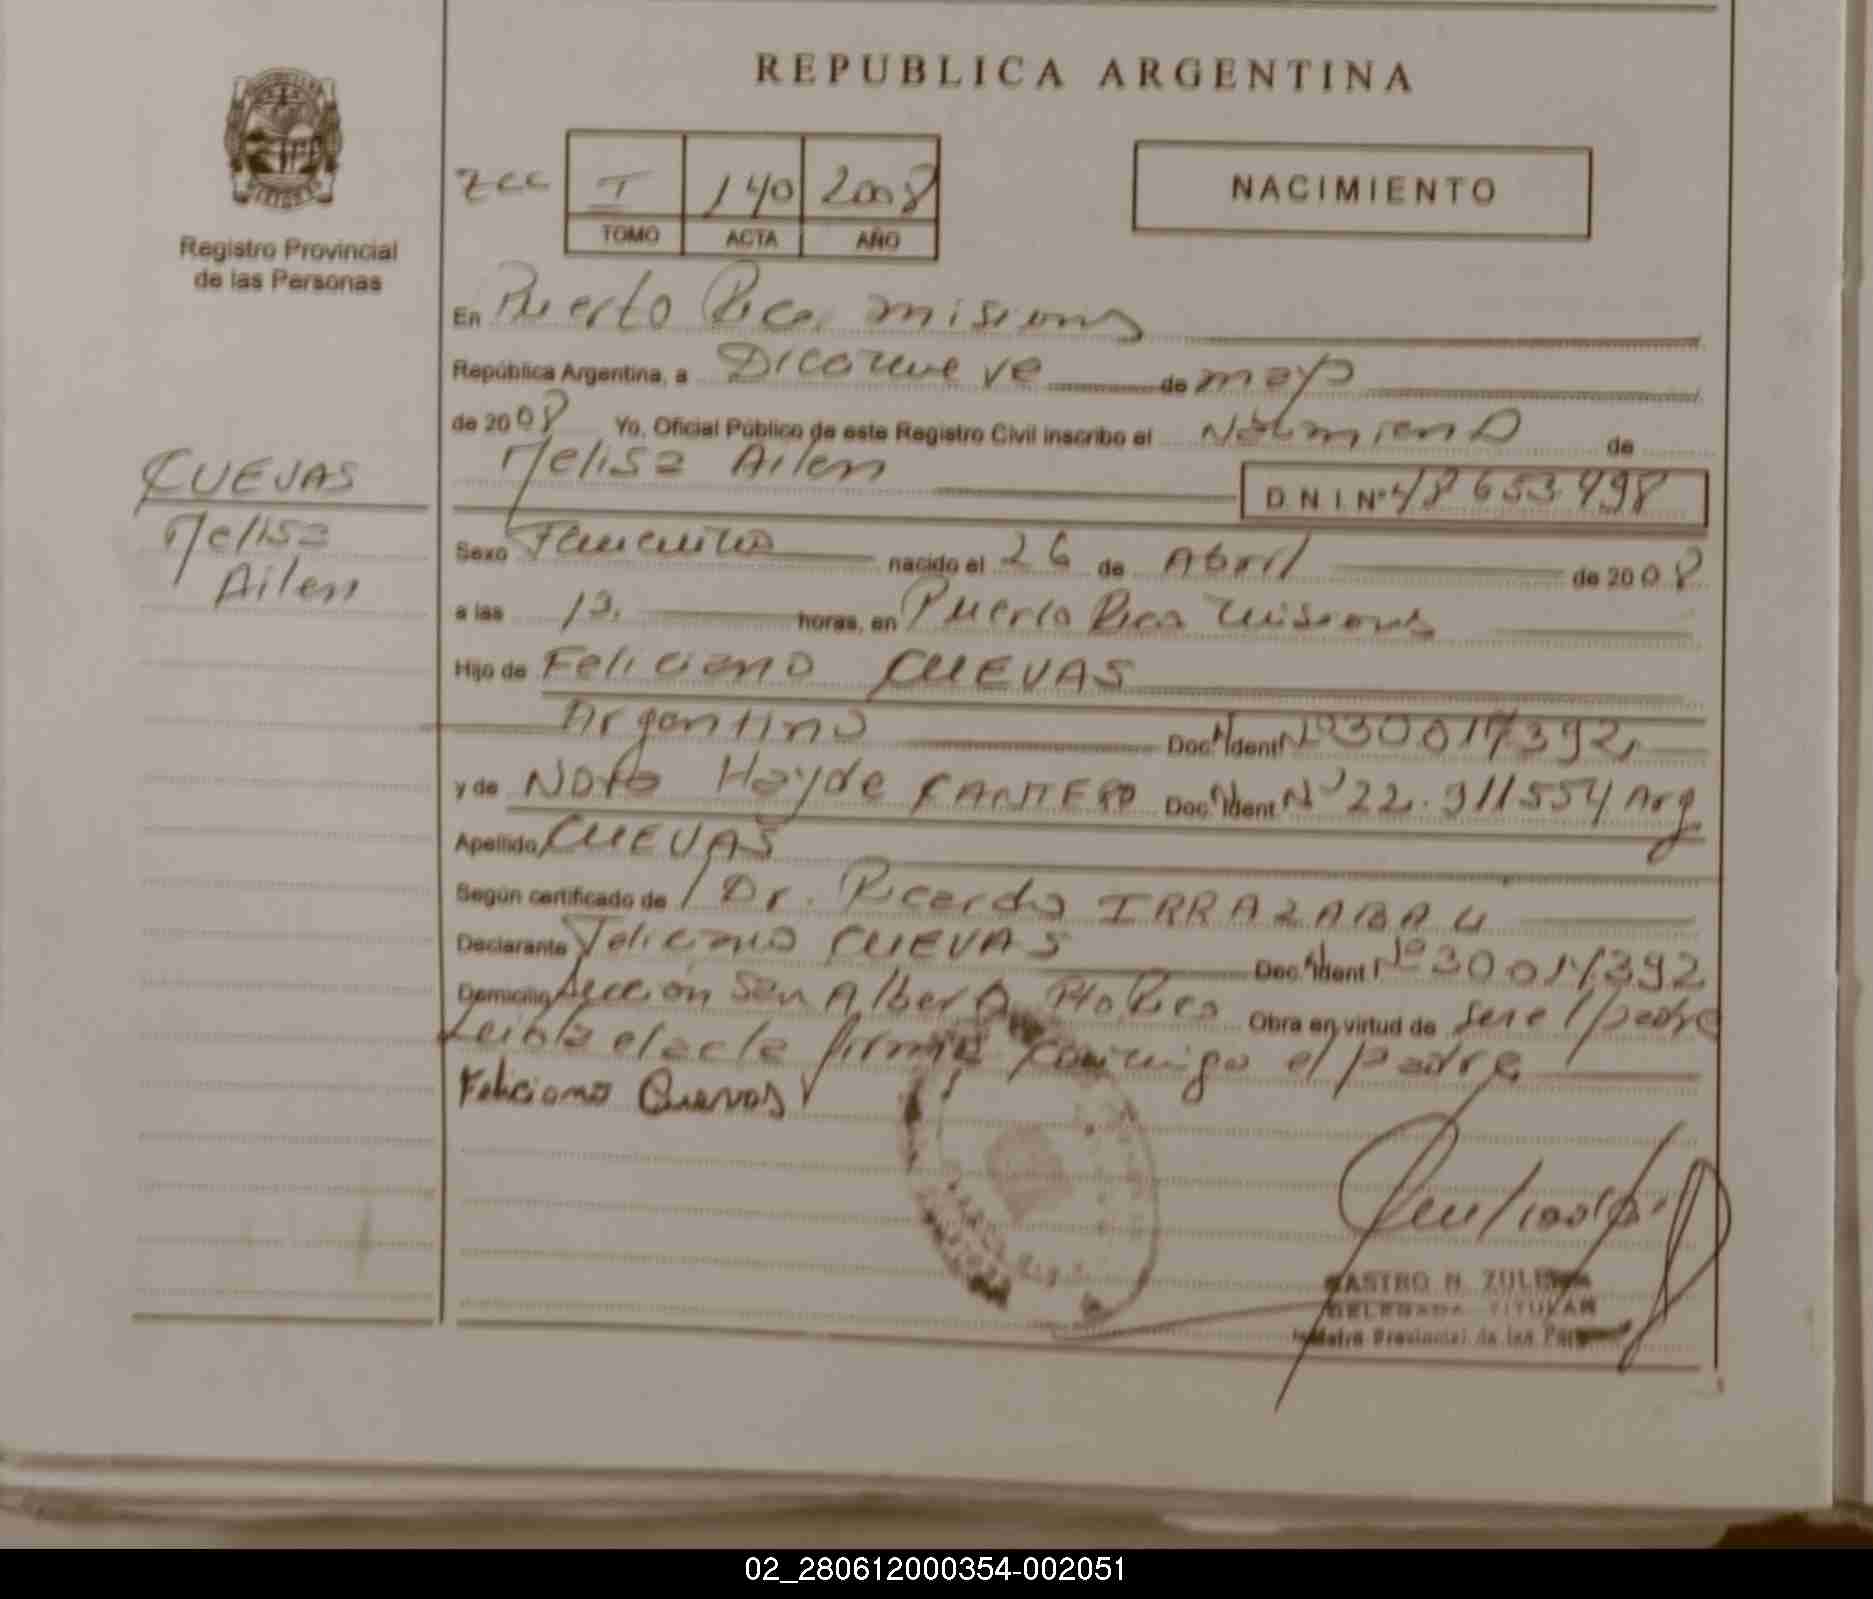 REPUBLICA ARGENTINA
I 140 2008
TOMO ACTA AÑO
NACIMIENTO
Registro Provincial
de las Personas
En Puerto Rico, misiones
República Argentina, a Diecinueve de mayo
de 2008 Yo, Oficial Público de este Registro Civil inscribo el Nacimiento de
Melisa Ailen
D N I Nº 48653498
CUEVAS
Melisa
Ailen
Sexo Femenino nacido el 26 de Abril de 2008
a las 13, horas, en Puerto Rico misiones
Hijo de Feliciano CUEVAS
Argentino Doc. Ident Nº 30017392
y de Hayde CANTERO Doc. Ident Nº 22.911554 Arg
Apellido CUEVAS
Según certificado de Dr. Ricardo IRRAZABAL
Declarante Feliciano CUEVAS Doc. Ident Nº 30017392
Domicilio Sección San Alberto Pto Rico Obra en virtud de ser el padre
Leida el acta firma conmigo el padre
Feliciano Cuevas
CASTRO N.
DELEGADA TITULAR
Provincial de las
02_280612000354-002051